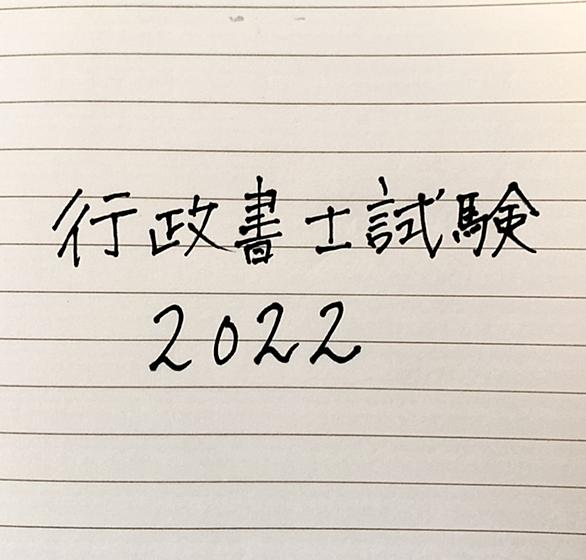 行政書士試験
2022